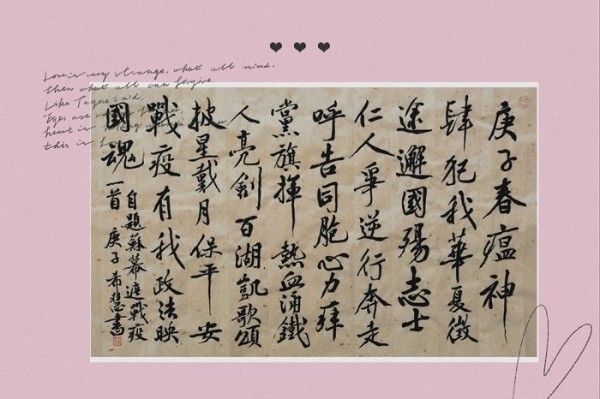 Love is very strange, what all mind,
then what all can forgive
Like Tagore said,
"Eyes are
heart is
this is
庚子春瘟神
肆犯我華夏徵
途邂國殤志士
仁人爭逆行奔走
呼告同胞心力
黨旗揮 熱血涌鐵
人亮劍百湖凱歌頌
披星戴月保平安
戰疫有我政法映
國魂
自題蘇幕遮戰疫
一首 庚子希慧書